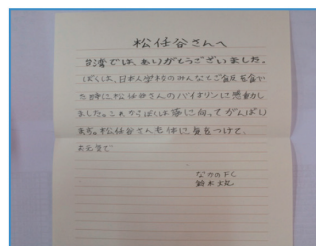 松任谷さんへ
台湾では、ありがとうございました。
ぼくは、日本人学校のみんなとご飯を食べ
た時に松任谷さんのバイオリンに感動し
ました。これからぼくは夢に向ってがんばり
ます。松任谷さんも体に気をつけて、
お元気で
なかの
鈴木